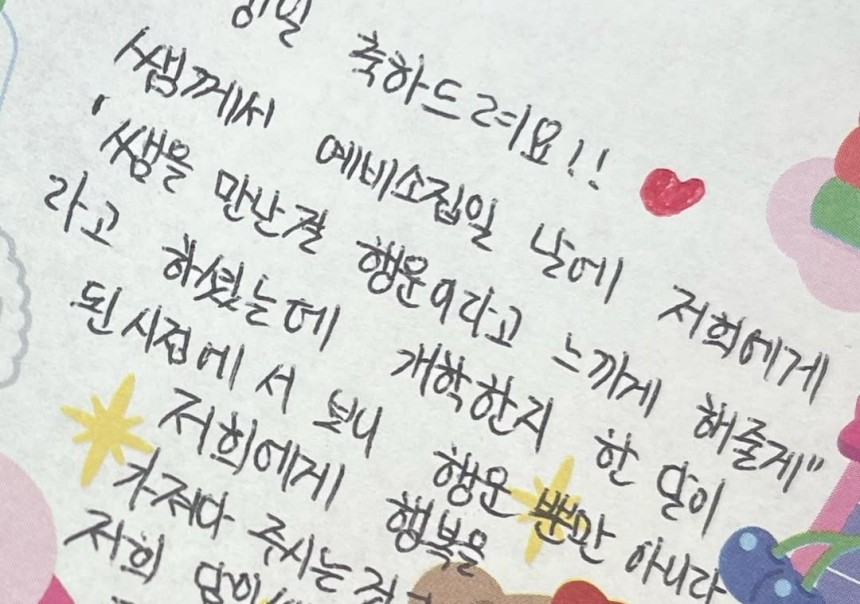 생일 축하드려요!!
쌤께서 예비소집일 날에 저희에게
'쌤을 만난걸 행운이라고 느끼게 해줄게"
라고 하셨는데 개학한지 한 달이
된 시점에서 보니 행운 뿐만 아니라
저희에게 행복을
가져다 주시는
저희